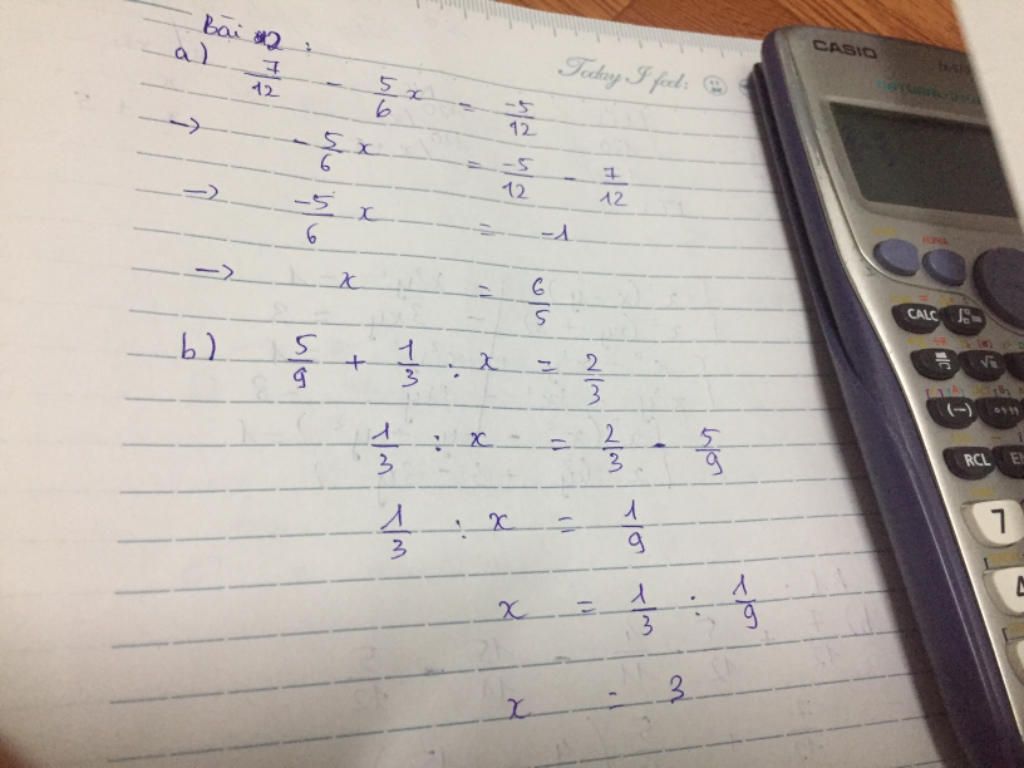 Bài 2:
a) 7/12 - 5/6 x = -5/12
→ - 5/6 x = -5/12 - 7/12
→ -5/6 x = -1
→ x = 6/5
b) 5/9 + 1/3 : x = 2/3
1/3 : x = 2/3 - 5/9
1/3 : x = 1/9
x = 1/3 : 1/9
x = 3
Today I feel:
CASIO
ALPHA
CALC
(-)
RCL
7